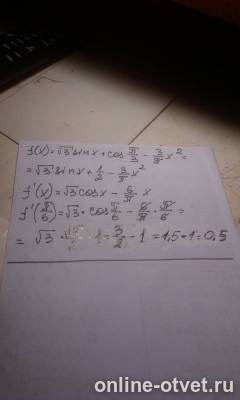 f(x)=√3 sinx + cos π/3 - 3/π x² =
= √3 sinx + 1/2 - 3/π x²
f'(x)=√3 cosx - 6/π x
f'(π/6)=√3 · cos π/6 - 6/π · π/6 =
= √3 · - 1 = 3/2 - 1 = 1,5 - 1 = 0,5
online-otvet.ru